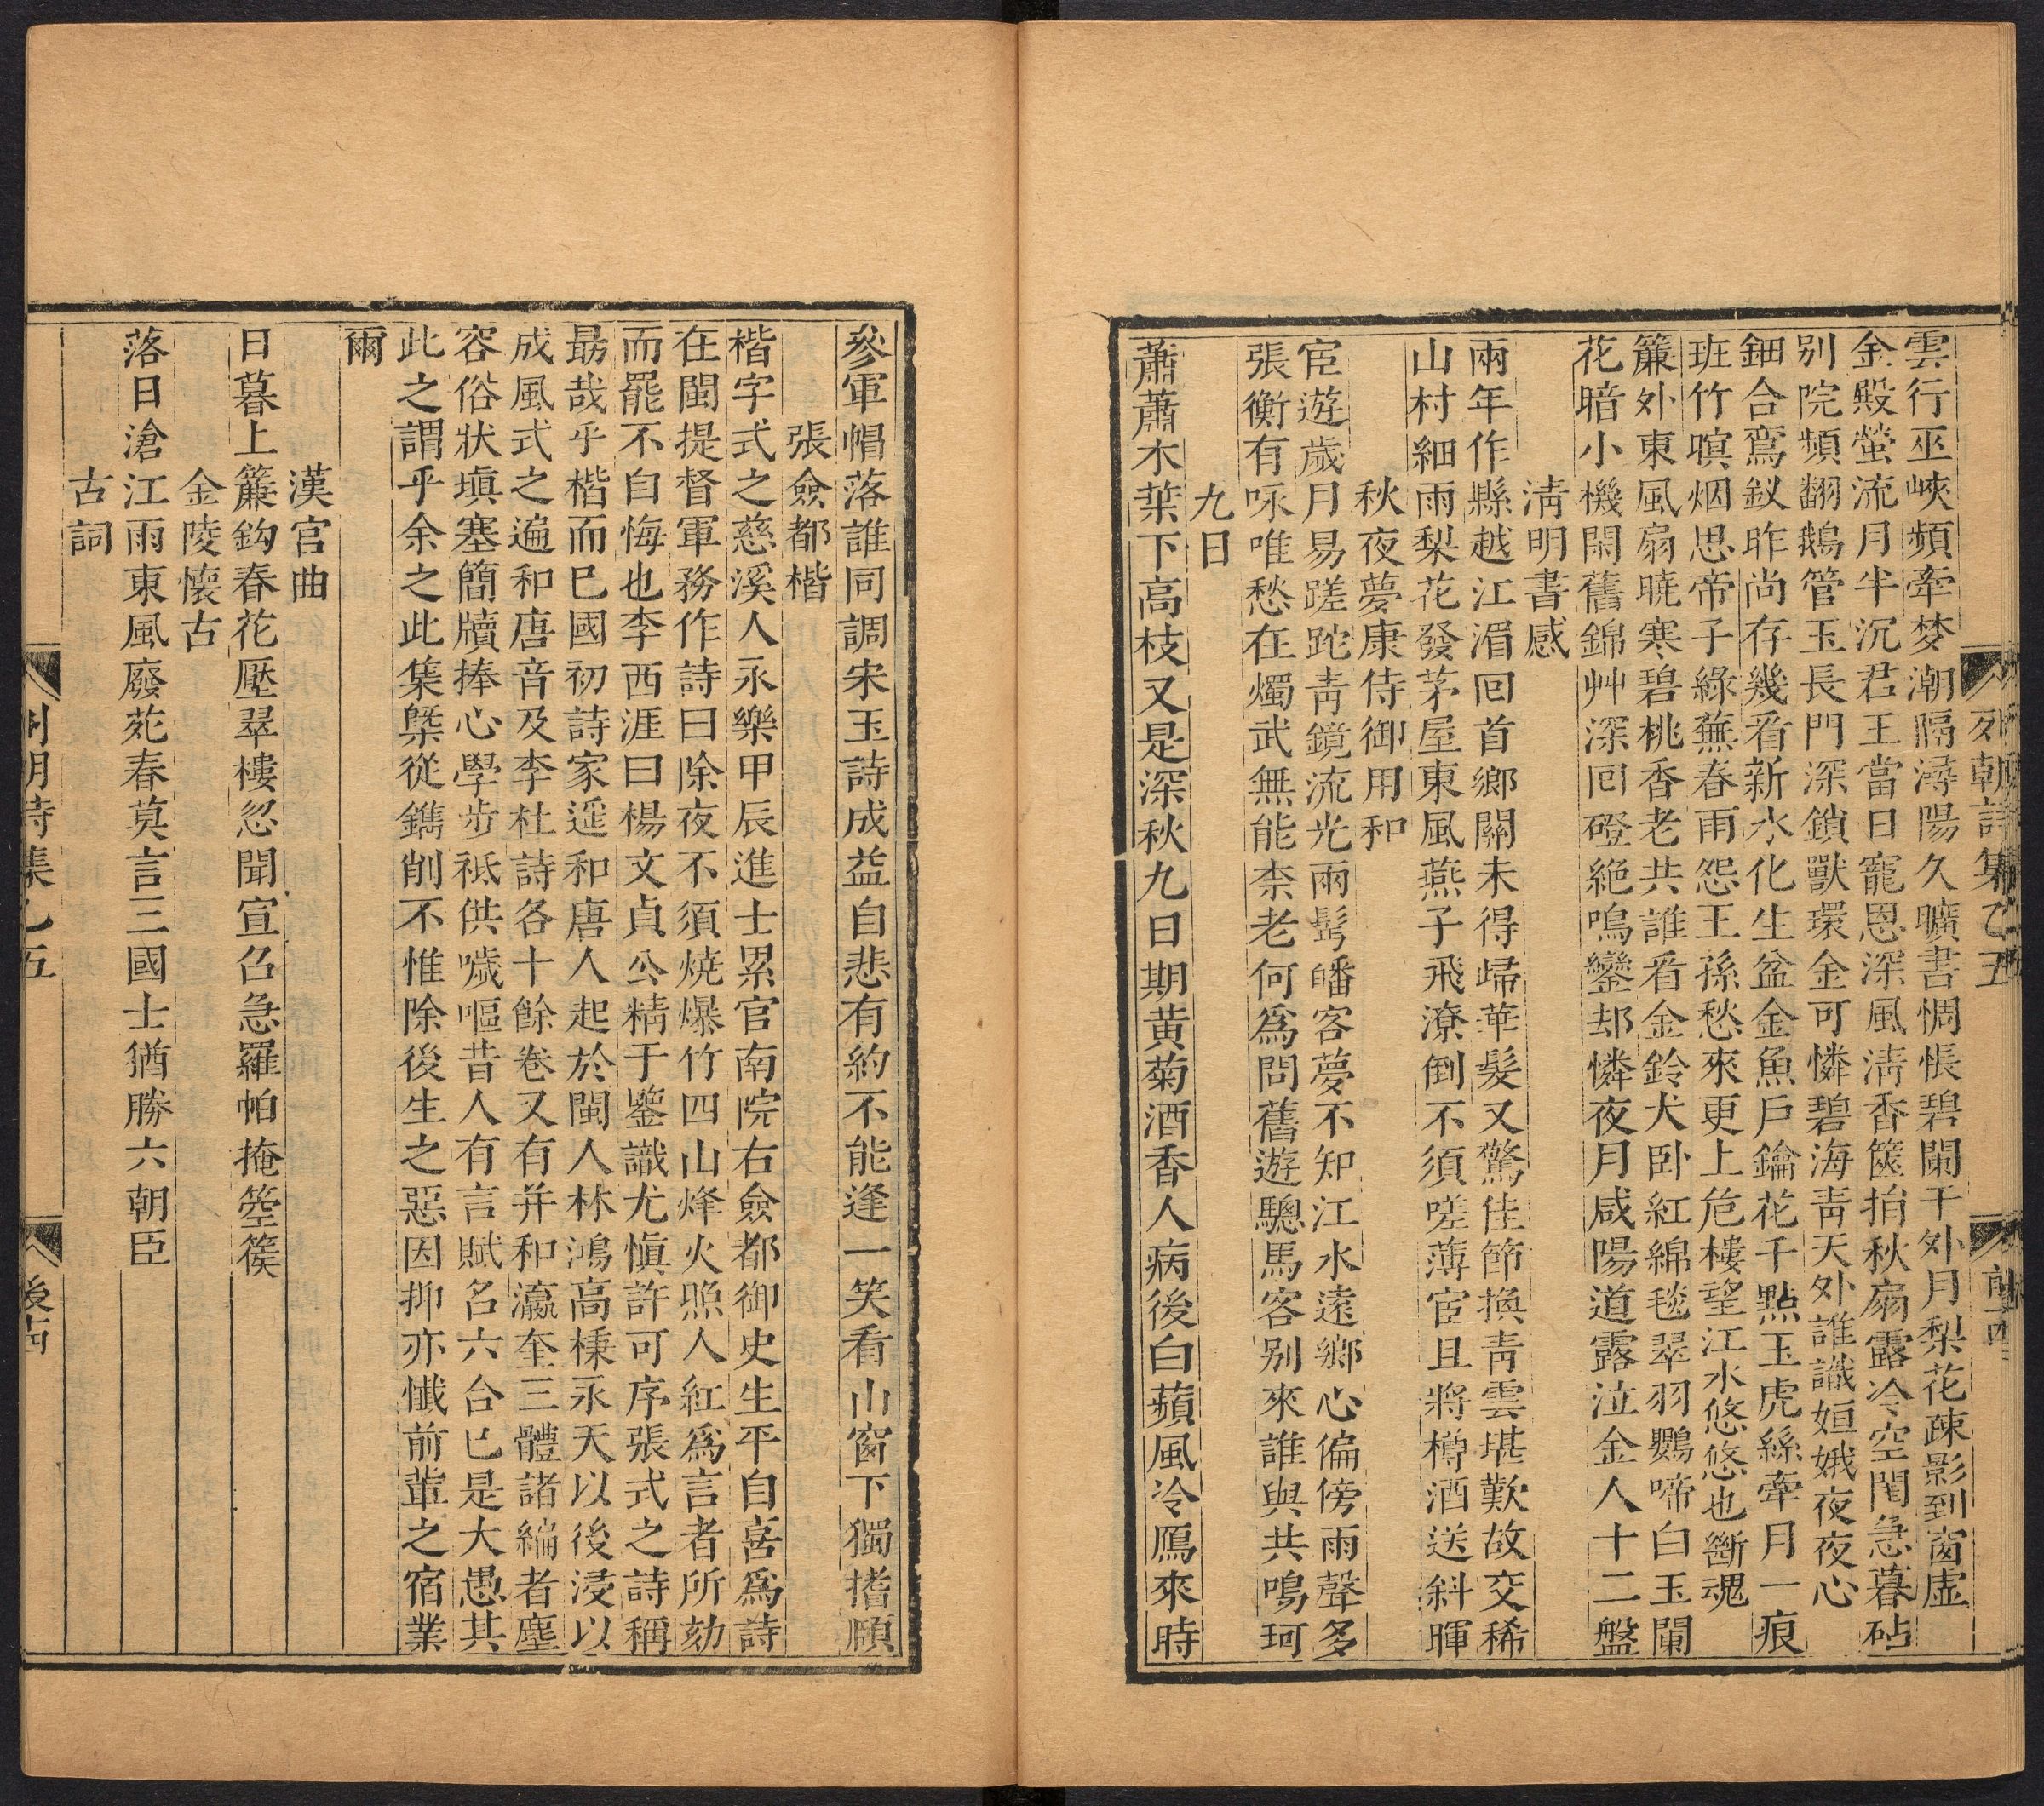 列朝詩集乙五
前四
雲行巫峽頻牽夢潮隔潯陽久曠書惆悵碧闌干外月梨花疎影到窗虛
金殿螢流月半沉君王當日寵恩深風淸香篋拍秋扇露冷空閨急暮砧
別院頻翻鵝管玉長門深鎖獸環金可憐碧海靑天外誰識姮娥夜夜心
鈿合鸞釵昨尚存幾看新水化生盆金魚戶鑰花千點玉虎絲牽月一痕
班竹暝烟思帝子綠蕪春雨怨王孫愁來更上危樓望江水悠悠也斷魂
簾外東風扇曉寒碧桃香老共誰看金鈴犬卧紅綿毯翠羽鸚啼白玉闌
花暗小機閑舊錦艸深囘磴絶鳴鑾却憐夜月咸陽道露泣金人十二盤
淸明書感
兩年作縣越江湄囘首鄉關未得歸華髮又驚佳節換靑雲堪歎故交稀
山村細雨梨花發茅屋東風燕子飛潦倒不須嗟薄宦且將樽酒送斜暉
秋夜夢康侍御用和
宦遊歲月易蹉跎靑鏡流光兩髩皤客夢不知江水遠鄉心偏傍雨聲多
張衡有咏唯愁在燭武無能柰老何爲問舊遊驄馬客別來誰與共鳴珂
九日
蕭蕭木葉下高枝又是深秋九日期黃菊酒香人病後白蘋風冷鴈來時
叅軍帽落誰同調宋玉詩成益自悲有約不能逢一笑看山窗下獨搘頤
張僉都楷
楷字式之慈溪人永樂甲辰進士累官南院右僉都御史生平自喜爲詩
在閩提督軍務作詩曰除夜不須燒爆竹四山烽火照人紅爲言者所劾
而罷不自悔也李西涯曰楊文貞公精于鑒識尤愼許可序張式之詩稱
最哉乎楷而巳國初詩家遥和唐人起於閩人林鴻高棅永天以後浸以
成風式之遍和唐音及李杜詩各十餘卷又有并和瀛奎三體諸編者塵
容俗狀塡塞簡牘捧心學步祇供噦嘔昔人有言賦名六合巳是大愚其
此之謂乎余之此集槩從鐫削不惟除後生之惡因抑亦懺前軰之宿業
爾
漢宮曲
日暮上簾鈎春花壓翠樓忽聞宣召急羅帕掩箜篌
金陵懷古
落日滄江雨東風廢苑春莫言三國士猶勝六朝臣
古詞
列朝詩集乙五
後四